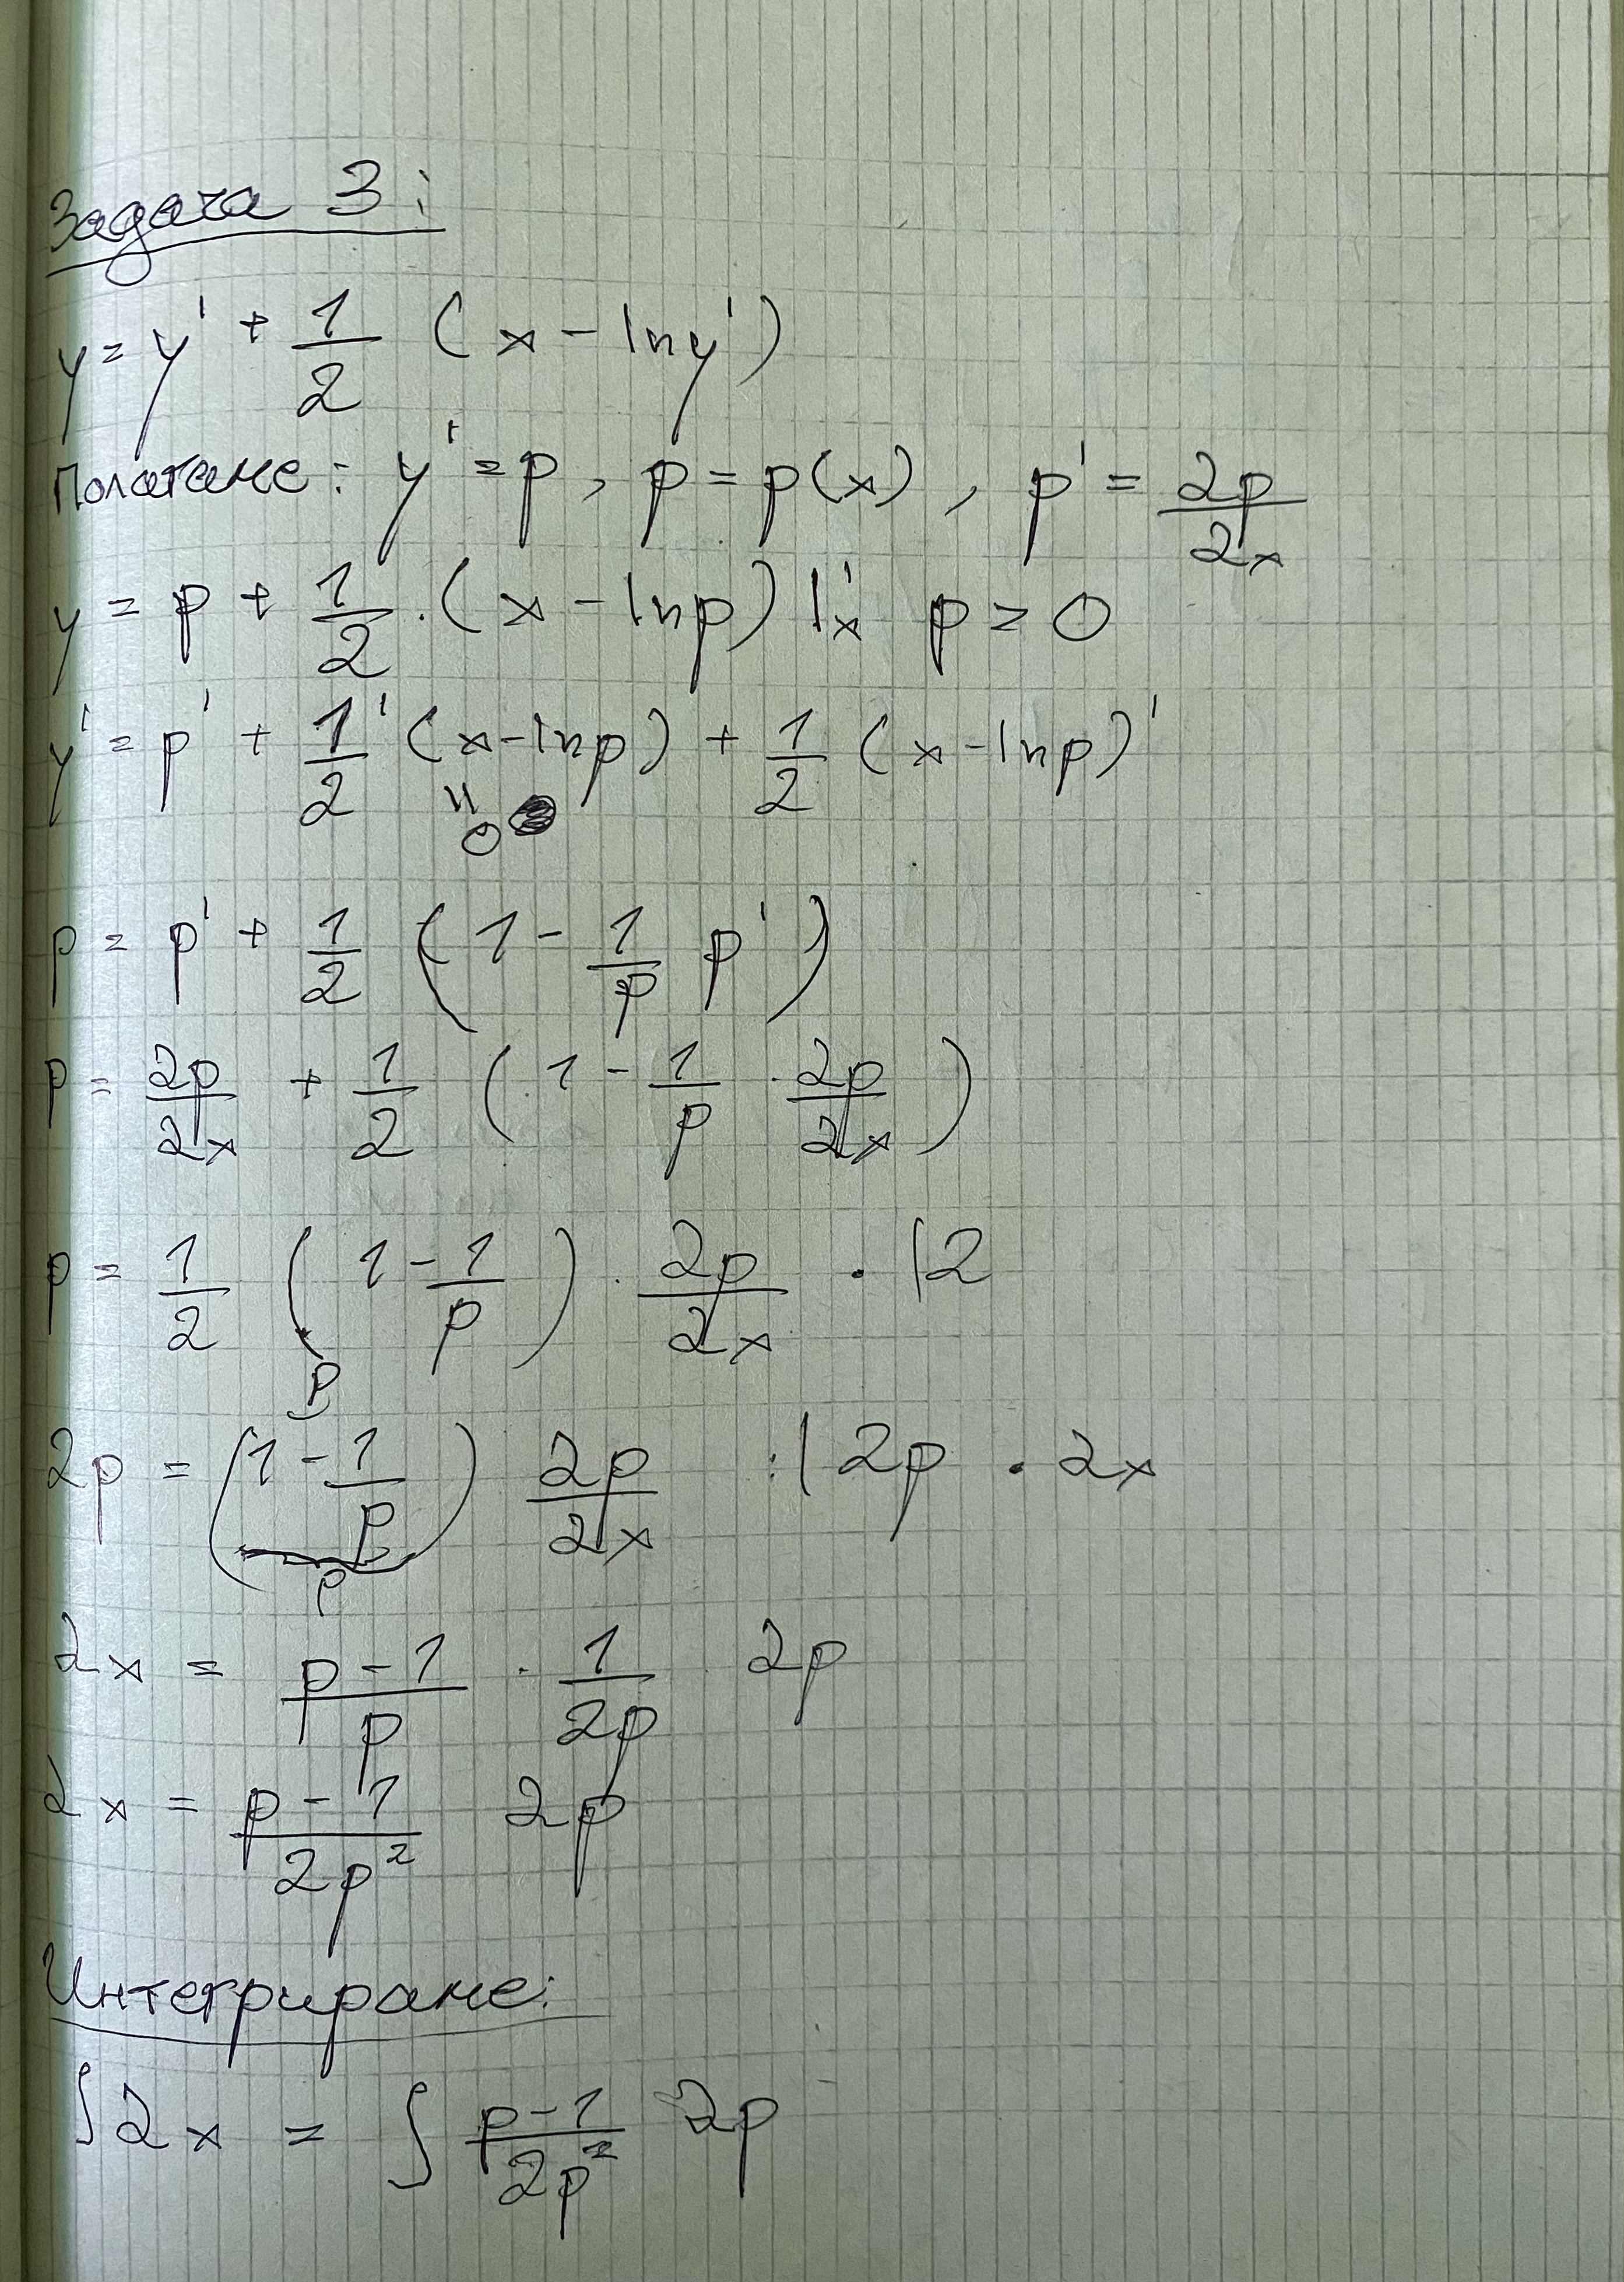 Задача 3:
y = y' + 1/2 (x - ln y')
Полагаме: y' = p, p = p(x), p' = 2p/2x
y = p + 1/2 . (x - ln p) |'x p = 0
y' = p' + 1/2' (x - ln p) + 1/2 (x - ln p)'
"0
p = p' + 1/2 (1 - 1/p p')
p = 2p/2x + 1/2 (1 - 1/p . 2p/2x)
p = 1/2 (1 - 1/p) . 2p/2x . |2
p
2p = (1 - 1/p) 2p/2x :| 2p . 2x
p
2x = p-1/p . 1/2p 2p
2x = p-1/2p² 2p
Интегриране:
∫2x = ∫ p-1/2p² 2p